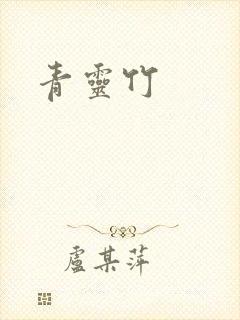 青靈竹
盧某萍